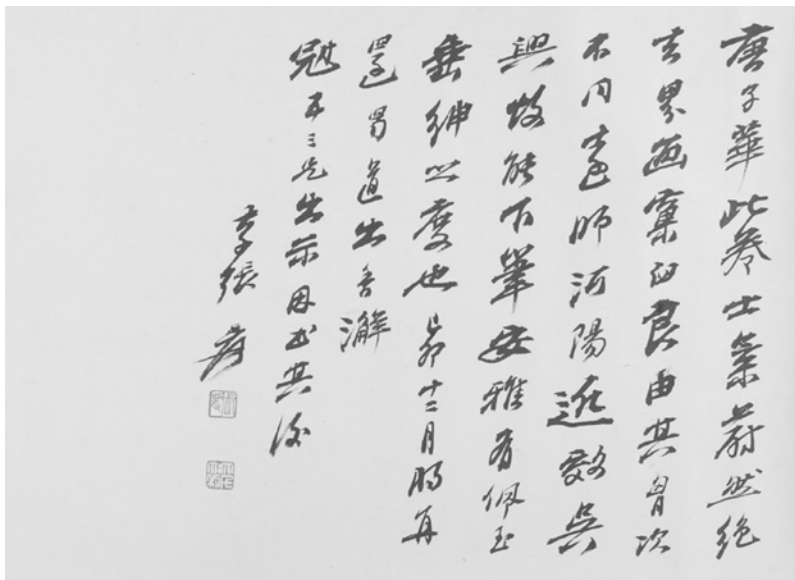 唐子華此卷士氣蔚然絕
去界畫窠臼良由其胷次
不同遠師河陽近效吳
興故能下筆安雅有佩玉
垂紳之度也己卯十二月將再
還蜀道出香澥
冠五三兄出示因書其後
大千張爰